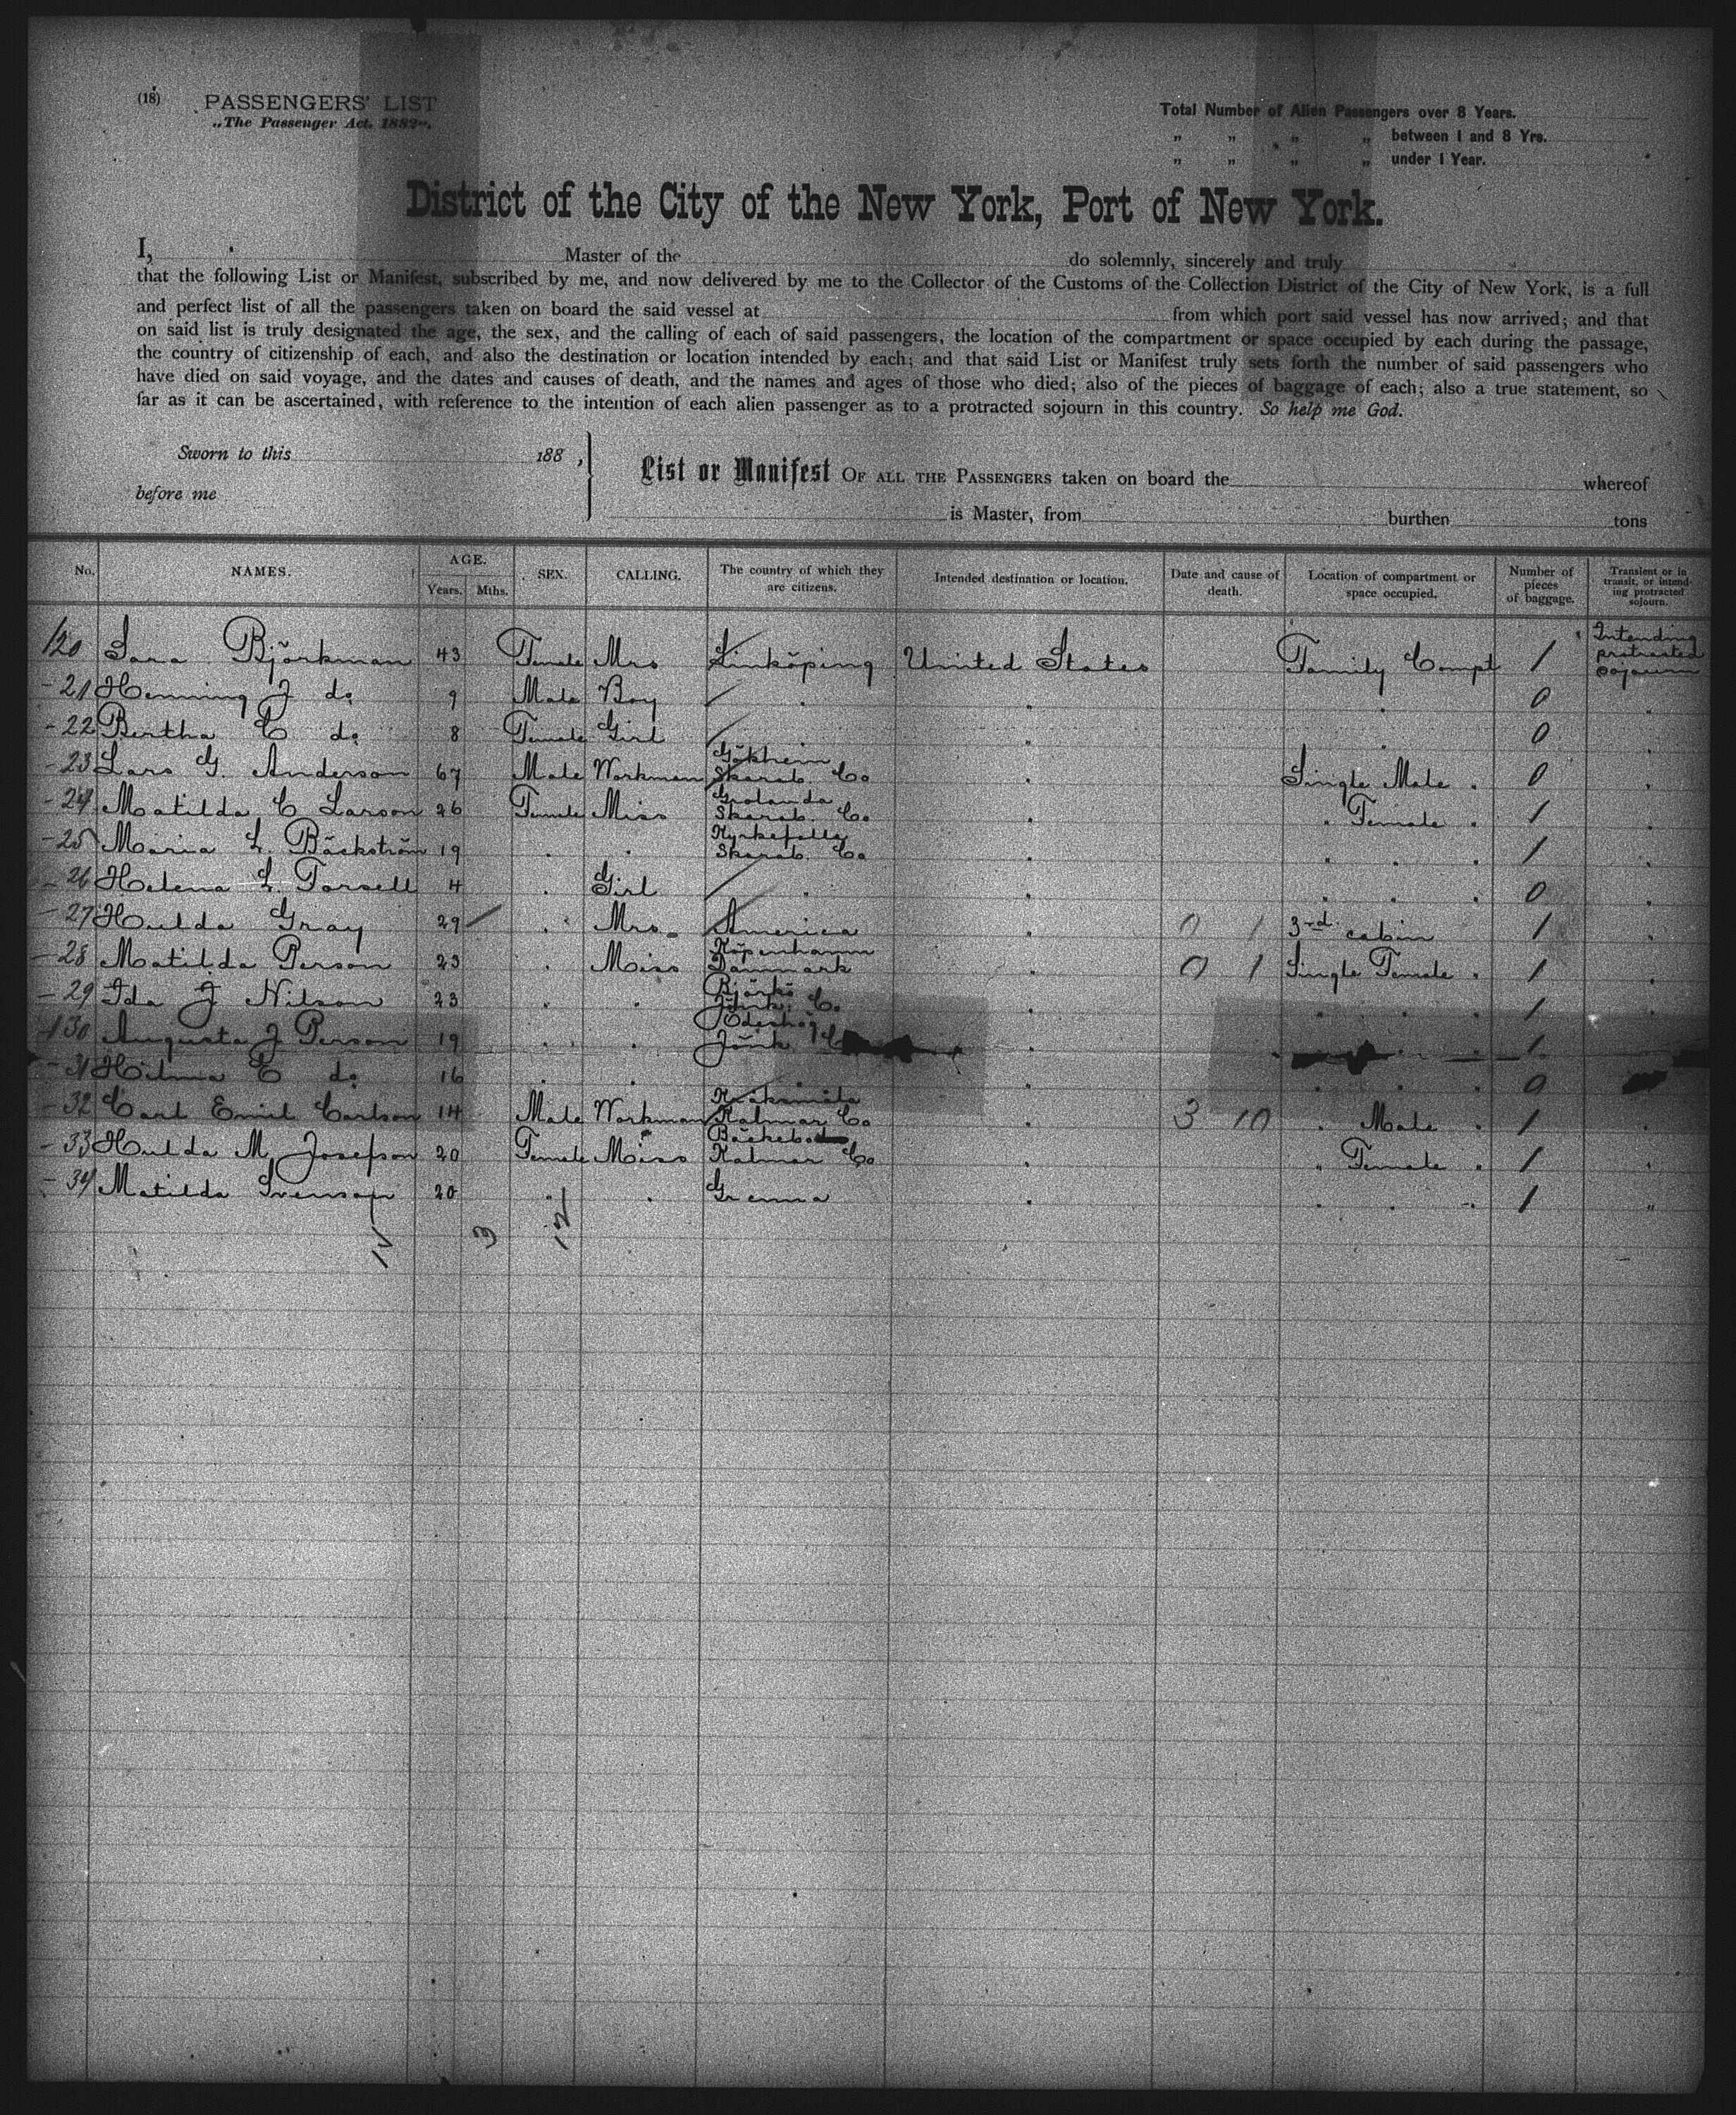 (18) PASSENGERS' LIST
„The Passenger Act, 1882".
Total Number of Alien Passengers over 8 Years.
„ „ „ „ between 1 and 8 Yrs.
„ „ „ „ under 1 Year.
District of the City of the New York, Port of New York.
I, Master of the do solemnly, sincerely and truly
that the following List or Manifest, subscribed by me, and now delivered by me to the Collector of the Customs of the Collection District of the City of New York, is a full
and perfect list of all the passengers taken on board the said vessel at from which port said vessel has now arrived; and that
on said list is truly designated the age, the sex, and the calling of each of said passengers, the location of the compartment or space occupied by each during the passage,
the country of citizenship of each, and also the destination or location intended by each; and that said List or Manifest truly sets forth the number of said passengers who
have died on said voyage, and the dates and causes of death, and the names and ages of those who died; also of the pieces of baggage of each; also a true statement, so
far as it can be ascertained, with reference to the intention of each alien passenger as to a protracted sojourn in this country. So help me God.
Sworn to this 188 ,
before me
List or Manifest OF ALL THE PASSENGERS taken on board the whereof
is Master, from burthen tons
No. NAMES. AGE. Years. Mths. SEX. CALLING. The country of which they are citizens. Intended destination or location. Date and cause of death. Location of compartment or space occupied. Number of pieces of baggage. Transient or in transit, or intending protracted sojourn.
120 Sara Björkman 43 Female Mrs Linköping United States Family Compt 1 Intending protracted sojourn
-21 Henning J do 9 Male Boy 0
-22 Bertha C do 8 Female Girl 0
-23 Lars G. Anderson 67 Male Workman Gökhem Skarab. Co Single Male 0
-24 Matilda C Larson 26 Female Miss Grolanda Skarab. Co Female 1
-25 Maria L. Bäckström 19 Kyrkefalla Skarab. Co 1
-26 Helena L. Torsell 4 Girl 0
-27 Hulda Gray 29 Mrs. America 0 1 3rd cabin 1
-28 Matilda Person 23 Miss Köpenhamn Danmark 0 1 Single Female 1
-29 Ida J Nilson 23 Björkö Jönk. Co 1
-130 Augusta J Person 19 Ödeshög Jönk Co 1
-31 Hilma E do 16 0
-32 Carl Emil Carlson 14 Male Workman Kråksmåla Kalmar Co 3 10 Male 1
-33 Hulda M. Josefson 20 Female Miss Bäckebo Kalmar Co Female 1
-34 Matilda Svenson 20 Grenna 1 "
3 12